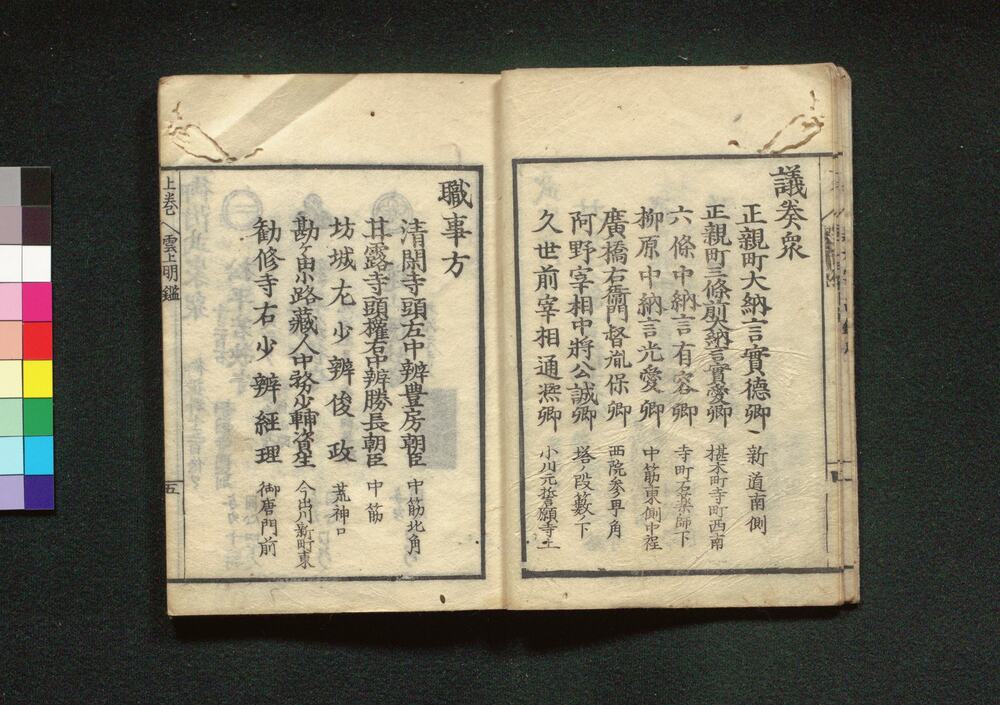 議奏衆
正親町大納言實德卿 新道南側
正親町三條前大納言實愛卿 椹木町寺町西南
六條中納言有容卿 寺町石薬師下
柳原中納言光愛卿 中筋東側中程
廣橋右衞門督胤保卿 西院参町角
阿野宰相中將公誠卿 塔ノ段藪ノ下
久世前宰相通凞卿 小川元誓願寺上
職事方
清閑寺頭左中辨豊房朝臣 中筋北角
甘露寺頭權右中辨勝長朝臣 中筋
坊城左少辨俊政 荒神口
勘ヶ由小路藏人中務少輔資生 今出川新町東
勧修寺右少辨経理 御唐門前
上巻 雲上明鑑 五